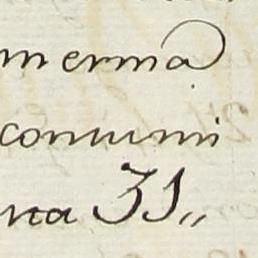 m erma
comuni
na 31,,